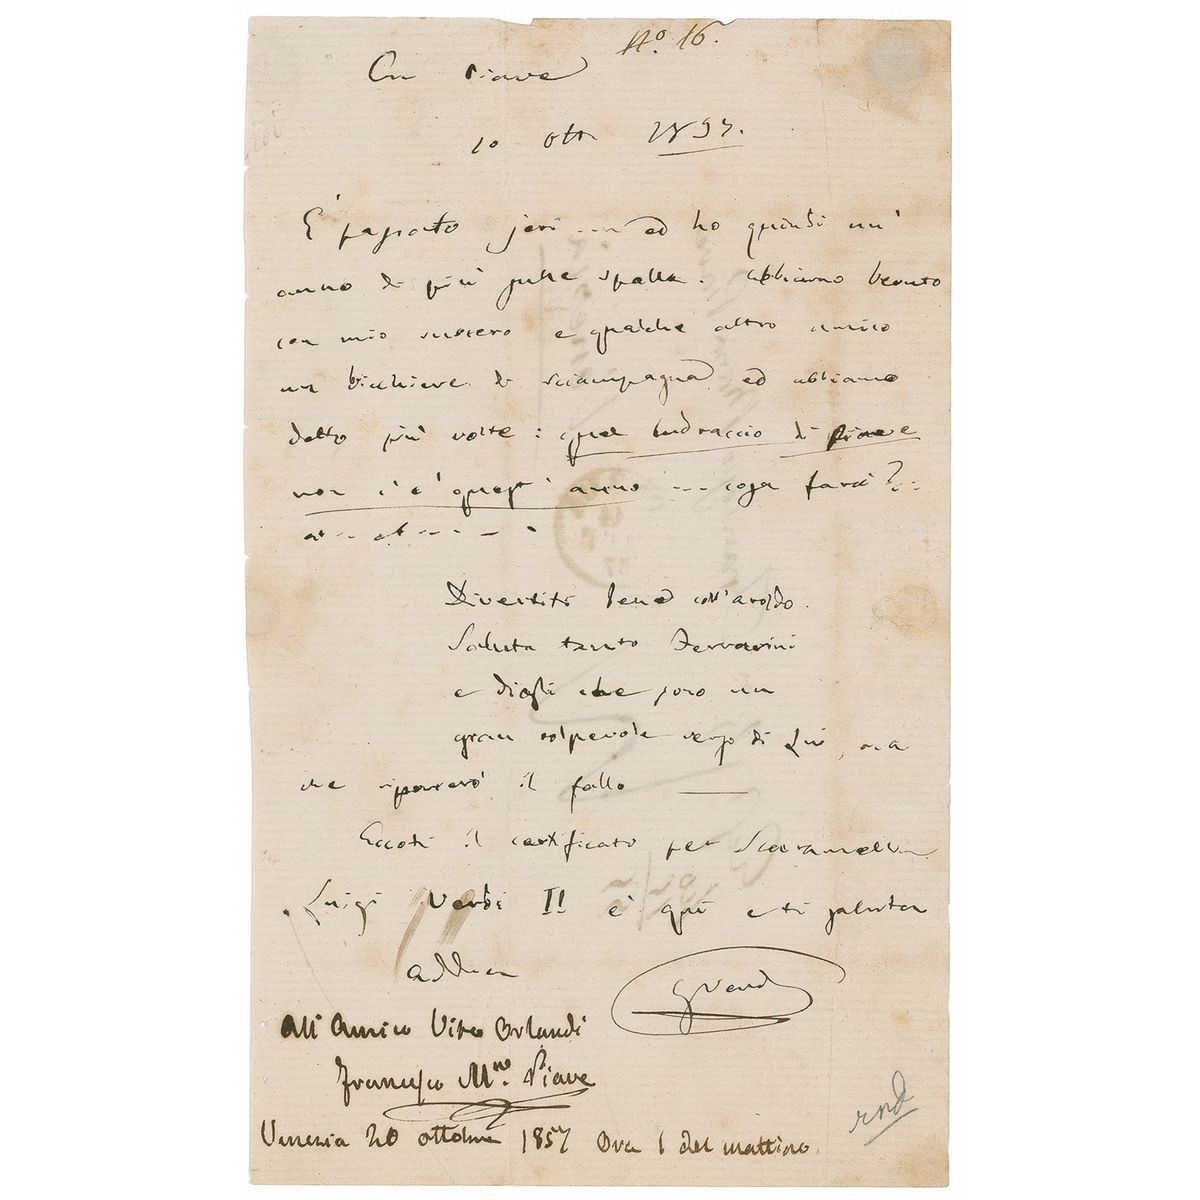 N.o 16.
Cn Piave
10 Ott 1857.
E' passato jeri .... ed ho quindi un'
anno di più sulle spalle. Abbiamo bevuto
con mio suocero e qualche altro amico
un bicchiere di sciampagna ed abbiamo
detto più volte: quel budraccio di Piave
non c'è quest'anno .... cosa farà?...
Divertiti bene coll'Aroldo.
Saluta tanto Ferrarini
e digli che sono un
gran colpevole verso di Lui, ma
che riparerò il fallo ——
Eccoti il certificato per Scaramella
Luigi Verdi II è quì e ti saluta
Addio
G Verdi
All'Amico Vito Orlandi
Francesco M.a Piave
Venezia 20 ottobre 1857 Ora 1 del mattino.